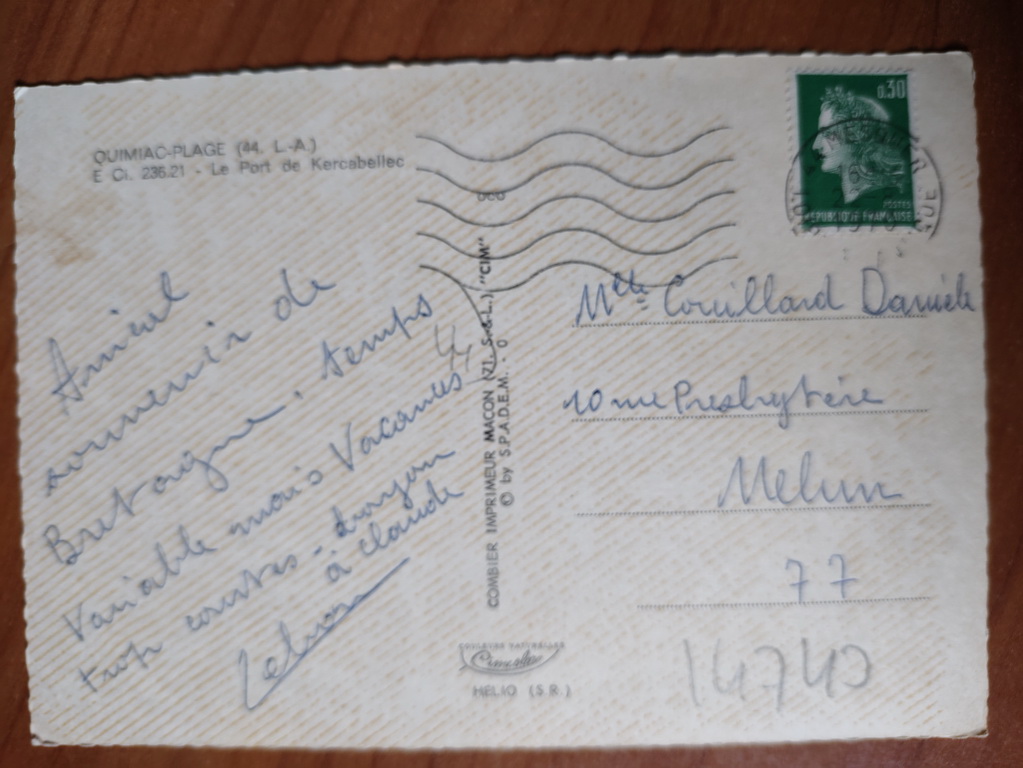 QUIMIAC-PLAGE (44. L.-A.)
E Ci. 236.21 - Le Port de Kercabellec
Amical
souvenir de
Bretagne. temps
Variable mais Vacances
trop courtes -
à Claude
COMBIER IMPRIMEUR MACON (71. S.-&-L.) "CIM"
© by S.P.A.D.E.M. - 0
COULEURS NATURELLES
HELIO (S.R.)
0,30
POSTES
REPUBLIQUE FRANÇAISE
Mlle Couillard Danièle
10 rue Presbytère
Melun
77